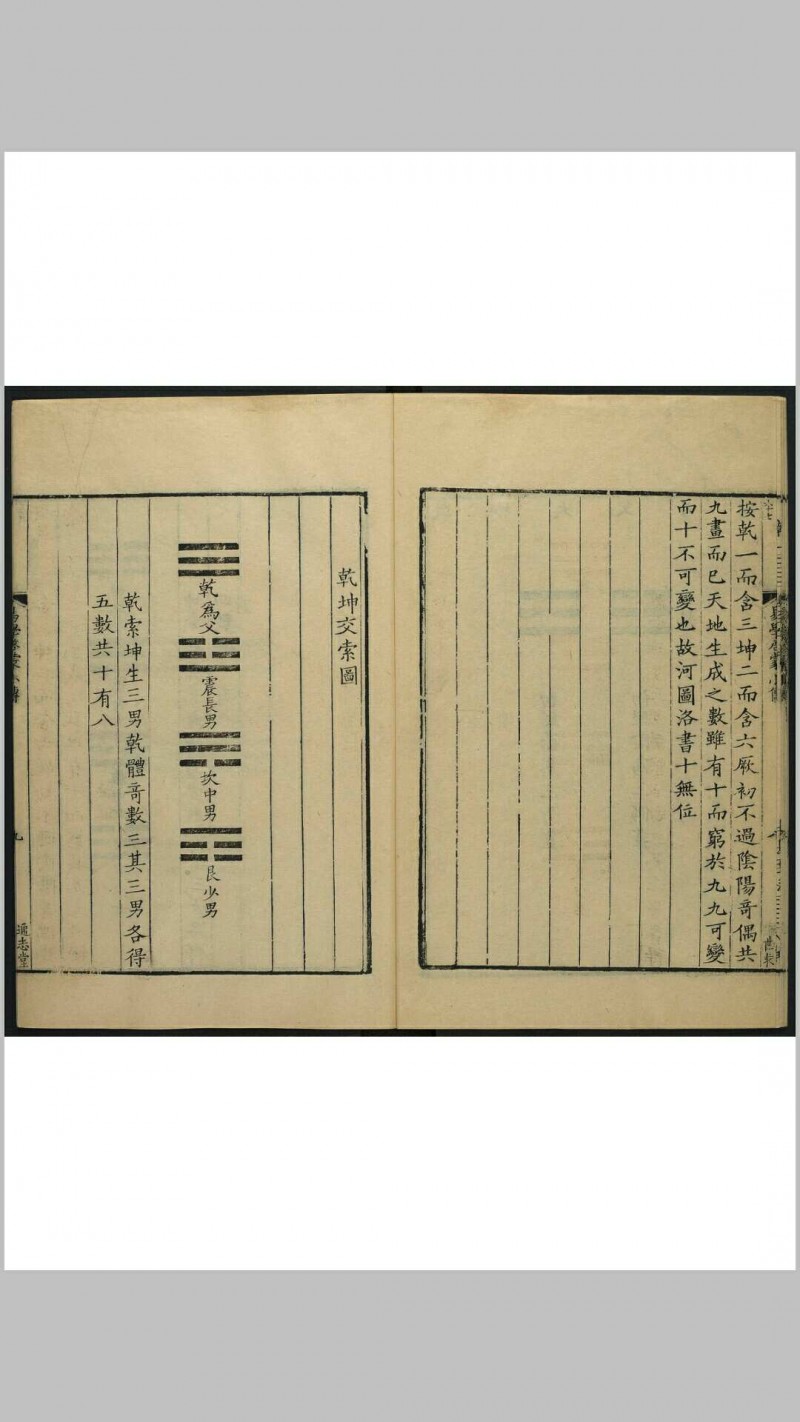 按乾一而含三坤二而含六厥初不過陰陽奇偶共
九畫而已天地生成之數雖有十而窮於九九可變
而十不可變也故河圖洛書十無位
乾坤交索圖
乾為父
震長男
坎中男
艮少男
乾索坤生三男乾體奇數三其三男各得
五數共十有八
九
通志堂